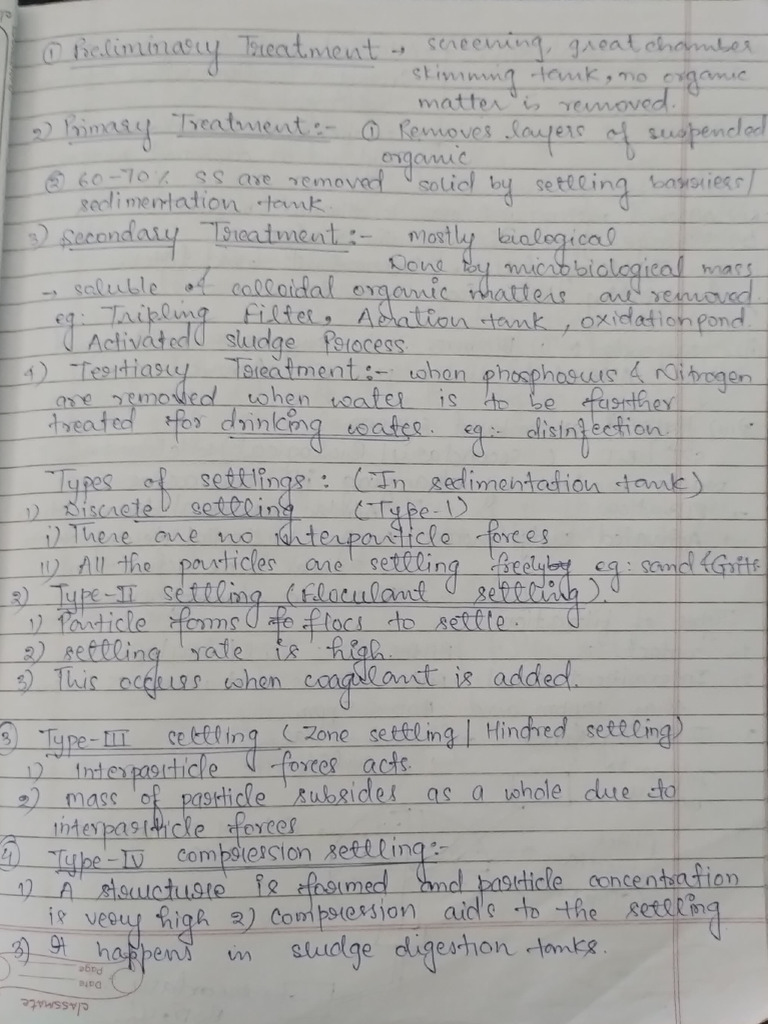 ① Preliminary Treatment → screening, great chamber
skimming tank, no organic
matter is removed.
2) Primary Treatment :- ① Removes layers of suspended
organic
② 60-70% SS are removed solid by settling barriers/
sedimentation tank.
3) Secondary Treatment :- mostly biological
Done by microbiological mass
→ soluble of colloidal organic matters are removed
eg: Tripling Filter, Aration tank, oxidation pond.
Activated sludge Process
4) Tertiary Treatment :- when phosphorus & Nitrogen
are removed when water is to be further
treated for drinking water. eg:- disinfection.
Types of settlings : (In sedimentation tank)
1) Discrete settling (Type-1)
i) There are no interparticle forces
ii) All the particles are settling freely eg: sand & Grits
2) Type-II settling (Floculant settling).
1) Particle forms to flocs to settle.
2) settling rate is high.
3) This occurs when coagulant is added.
③ Type-III settling (Zone settling | Hindred settling)
1) Interparticle forces acts.
2) mass of particle subsides as a whole due to
interparticle forces
④ Type-IV compression settling :-
1) A structure is formed and particle concentration
is very high 2) compression aids to the settling
3) It happens in sludge digestion tanks.
classmate
Date
Page